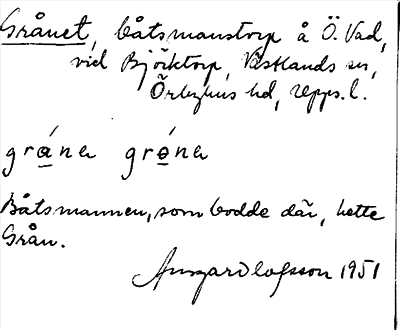 Grånet, båtsmanstorp å Ö. Vad,
vid Björktorp, Västlands sn,
Örbyhus hd, Upps. l.
grána gróna
Båtsmannen, som bodde där, hette
Grån.
Olofsson 1951